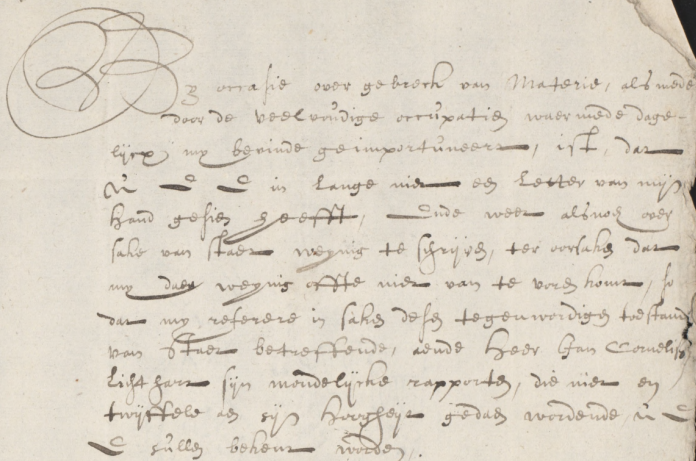 By occasie over gebreck van Materie, als mede
door de veelvoudige occupatien waermede dage-
lijcx my bevinde geimportuneert, ist, dat
U E E in lange niet een letter van mijn
hand gesien heefft, Ende weet alsnoch over
sake van staet weynig te schrijven, ter oorsaken dat
my daer weynig offte niet van te voren komt, so
dat my refere in saken desen tegenwordigen toestand
van Staet betreffende, aende Heer Jan Cornelisz
Lichthart sijn mondelijcke rapporten, die niet en
twijffele aen sijn Hoogheyt gedaen wordende, U E
E sullen bekent worden.